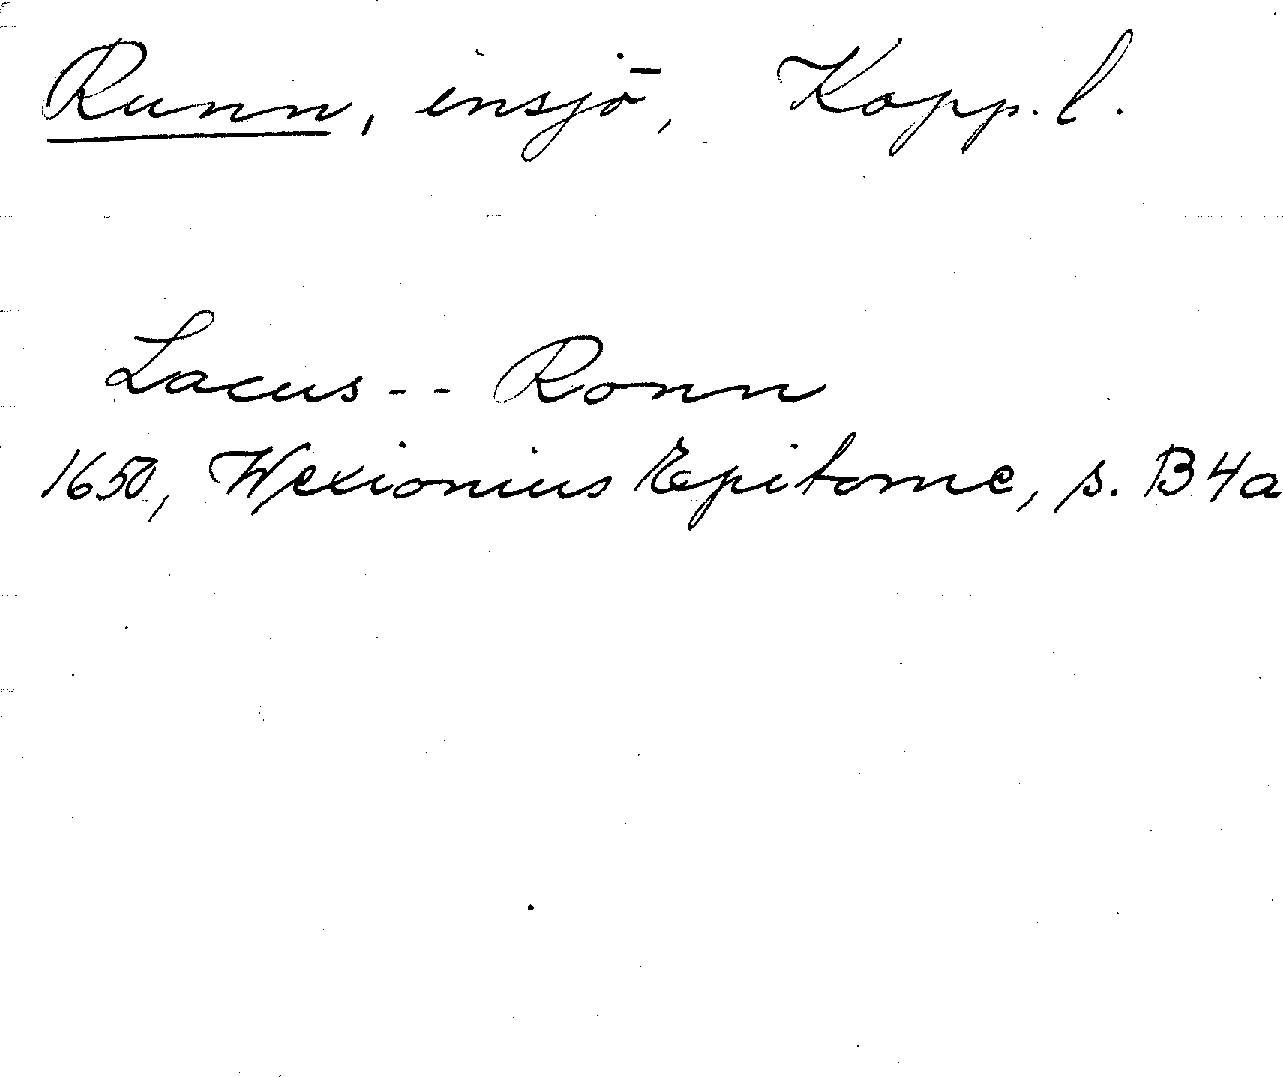 Runn, insjö, Kopp. l.
Lacus -- Ronn
1650, Wexionius Epitome, s. B4a